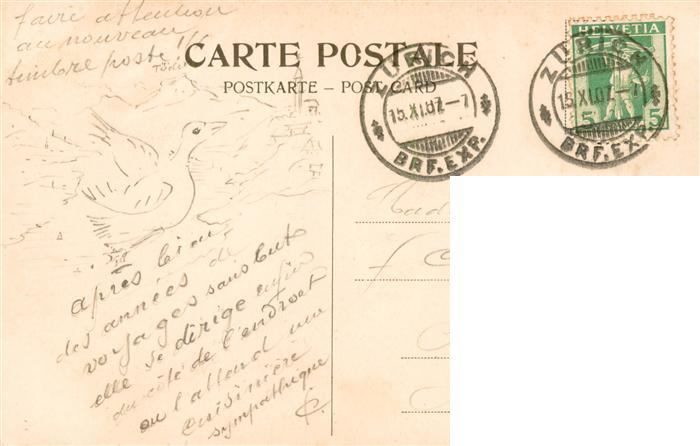 faire attention
au nouveau
timbre poste !!!
CARTE POSTALE
POSTKARTE – POST CARD
ZÜRICH
15.XI.07.–7
BRF.EXP.
HELVETIA
5 5
ZÜRICH
15.XI.07.–7
BRF.EXP.
après bien
des années de
voyages sans but
elle se dirige enfin
du côté de l'endroit
ou l'attend une
cuisinière
sympathique
C.